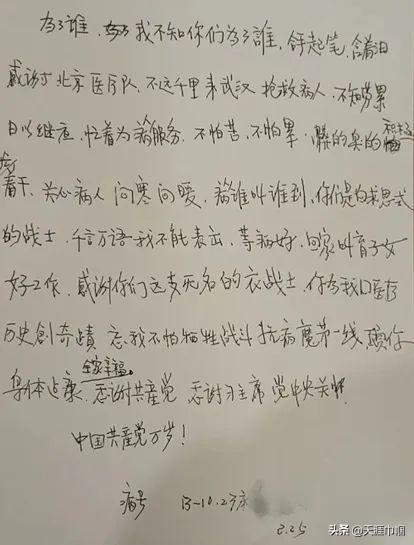 为了谁,我不知你们为了誰,舒起笔,含着泪
感谢 北京医疗队,不远千里来武汉 抢救病人,不知劳累
日以继夜,忙着为病服务,不怕苦,不怕累,髒的臭的积极
着干、关心病人 问寒问暖,病谁叫誰到,你们是白求恩式
的战士,千言万语我不能表出,等病好,回家叫育子女
好工作,感谢你们这支无名的 衣战士,你为我 医疗
历史創奇蹟 忘我不怕牺牲战斗 抗病魔第一线 願你
全家幸福
身体 康,感谢共產党 感谢习主席 党中央关怀
中国共產党万岁!
病号 13-10.23床
3.25
头条 @天涯巾帼